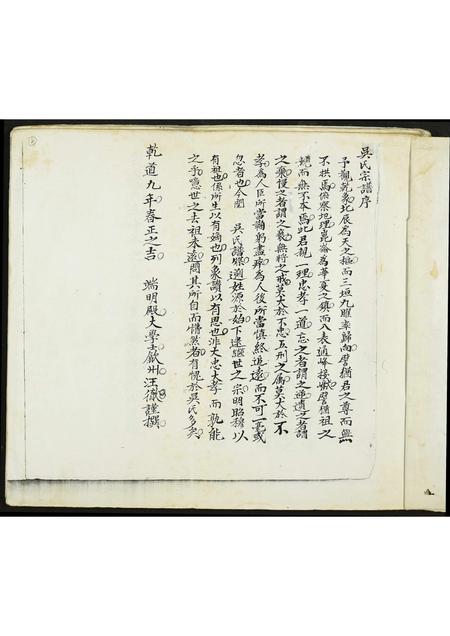 吳氏宗譜序
予觀乾象北辰為天之樞而三垣九曜率歸向譬猶君之尊而無
不拱焉俯察地理崑崙為華夏之鎮而八表通峰接獻譬猶祖之
親而無不本焉此君親一理忠孝一道忘之者謂之逆遺之者謂
之棄慢之者謂之褻無將之戒莫大於不忠五刑之屬莫大於不
孝為人臣所當鞠躬盡瘁為人後所當慎終追遠而不可一毫或
忽者也今閱 吳氏譜牒遡姓源於始下逮繼世之宗明昭穆以
有祖也係所生以有嫡也列象讚以有思也非大忠大孝而孰能
之乎噫世之去祖未遠問其所自而惜然者有愧於吳氏多矣
乾道九年春正之吉 端明殿大學士歙州汪徹謹撰